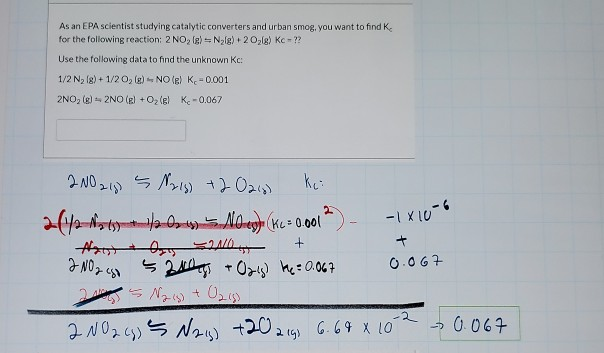 As an EPA scientist studying catalytic converters and urban smog, you want to find Kc
for the following reaction: 2 NO₂ (g) ⇌ N₂(g) + 2 O₂(g) Kc = ??
Use the following data to find the unknown Kc:
1/2 N₂ (g) + 1/2 O₂ (g) ⇌ NO (g) Kc = 0.001
2NO₂ (g) ⇌ 2NO (g) + O₂ (g) Kc = 0.067
2NO₂(g) ⇌ N₂(g) + 2O₂(g) Kc:
2(1/2 N₂(g) + 1/2 O₂(g) ⇌ NO(g)) (Kc = 0.001²) - -1 x 10⁻⁶
N₂(g) + O₂(g) ⇌ 2NO(g) + +
2NO₂(g) ⇌ 2NO(g) + O₂(g) Kc = 0.067 0.067
2NO(g) ⇌ N₂(g) + O₂(g)
2NO₂(g) ⇌ N₂(g) + 2O₂(g) 6.69 x 10⁻² → 0.067